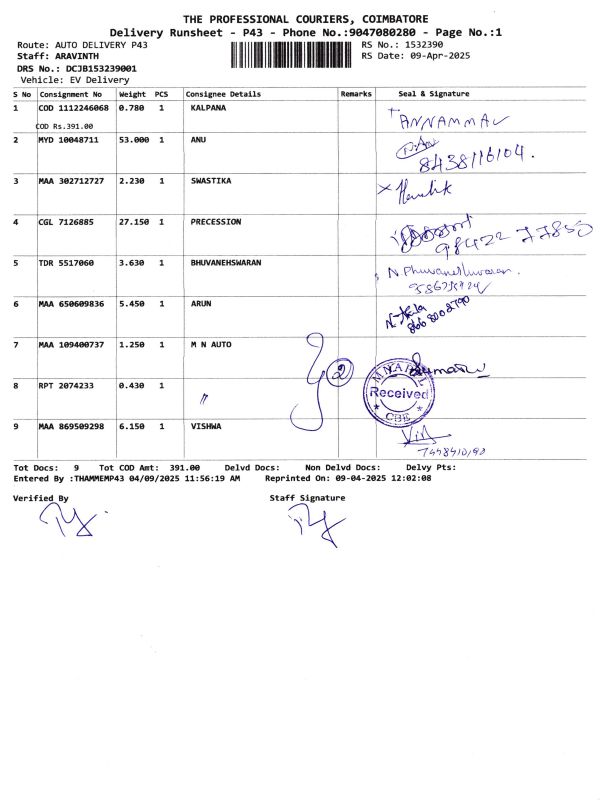 THE PROFESSIONAL COURIERS, COIMBATORE
Delivery Runsheet - P43 - Phone No.:9047080280 - Page No.:1
Route: AUTO DELIVERY P43
RS No.: 1532390
Staff: ARAVINTH
RS Date: 09-Apr-2025
DRS No.: DCJB153239001
Vehicle: EV Delivery
S No Consignment No Weight PCS Consignee Details Remarks Seal & Signature
1 COD 1112246068 0.780 1 KALPANA
COD Rs.391.00
ANNAMMAL
2 MYD 10048711 53.000 1 ANU
8438116104.
3 MAA 302712727 2.230 1 SWASTIKA
4 CGL 7126885 27.150 1 PRECESSION
5 TDR 5517060 3.630 1 BHUVANEHSWARAN
N. Bhuvaneshwaran.
6 MAA 650609836 5.450 1 ARUN
7 MAA 109400737 1.250 1 M N AUTO
2
8 RPT 2074233 0.430 1 "
Received
CBE
9 MAA 869509298 6.150 1 VISHWA
Tot Docs: 9 Tot COD Amt: 391.00 Delvd Docs: Non Delvd Docs: Delvy Pts:
Entered By :THAMMEMP43 04/09/2025 11:56:19 AM Reprinted On: 09-04-2025 12:02:08
Verified By Staff Signature